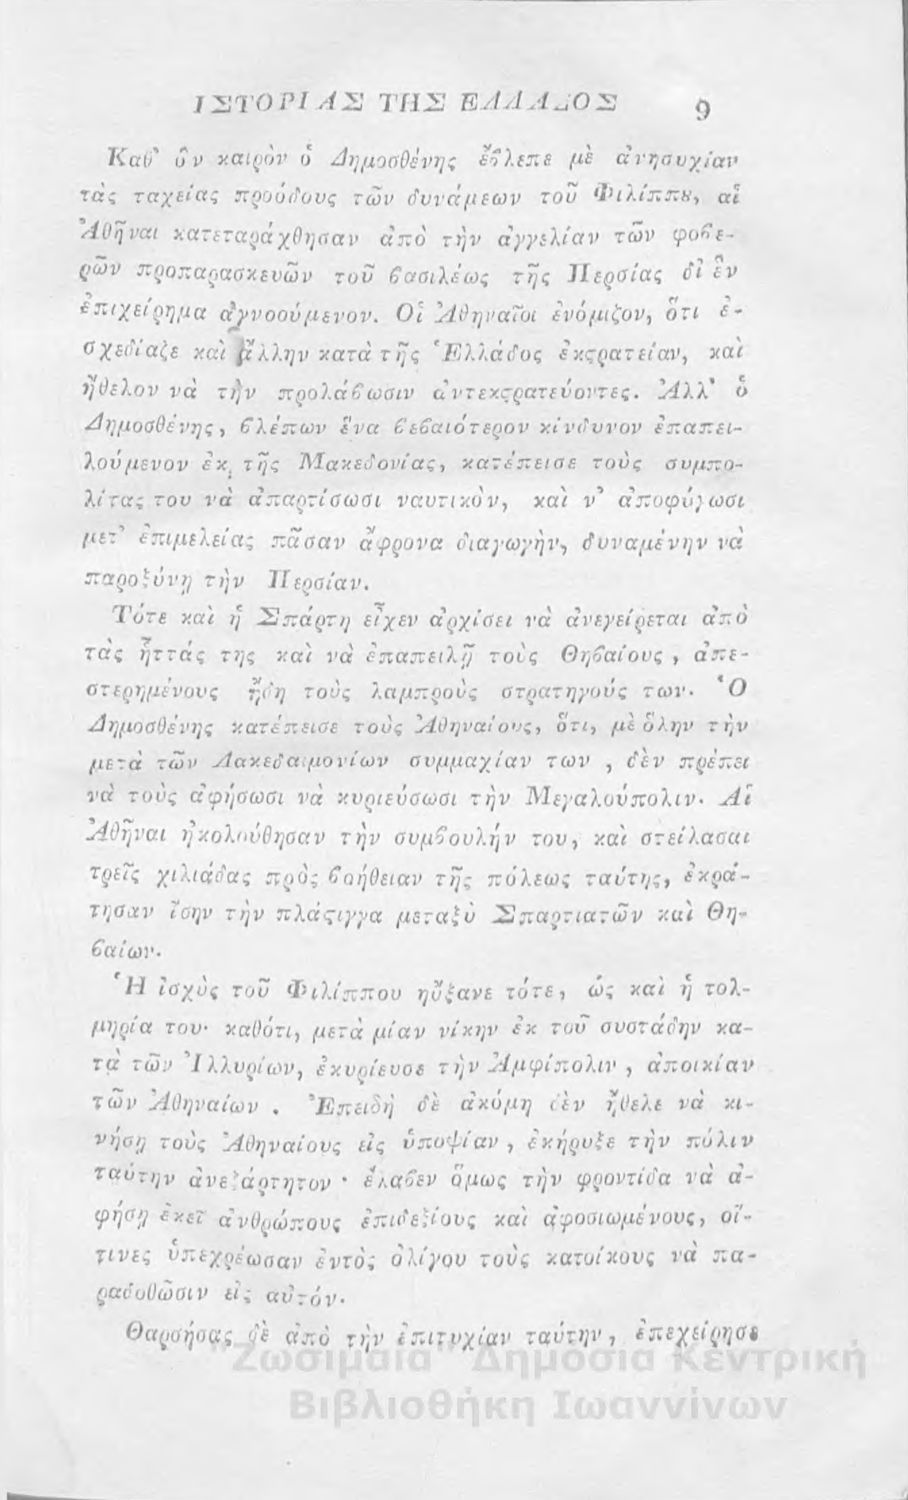 ΙΣΤΟΡΙΑΣ ΤΗΣ ΕΛΛΑΔΟΣ 9
Καθ' ὃν καιρὸν ὁ Δημοσθένης ἔβλεπε μὲ ἀνησυχίαν
τὰς ταχείας προόδους τῶν δυνάμεων τοῦ Φιλίππȣ, αἱ
Ἀθῆναι κατεταράχθησαν ἀπὸ τὴν ἀγγελίαν τῶν φοβε-
ρῶν προπαρασκευῶν τοῦ βασιλέως τῆς Περσίας δι' ἓν
ἐπιχείρημα ἀγνοούμενον. Οἱ Ἀθηναῖοι ἐνόμιζον, ὅτι ἐ-
σχεδίαζε καὶ ἄλλην κατὰ τῆς Ἑλλάδος ἐκϛρατείαν, καὶ
ἤθελον νὰ τὴν προλάβωσιν ἀντεκϛρατεύοντες. Ἀλλ' ὁ
Δημοσθένης, βλέπων ἕνα βεβαιότερον κίνδυνον ἐπαπει-
λούμενον ἐκ τῆς Μακεδονίας, κατέπεισε τοὺς συμπο-
λίτας του νὰ ἀπαρτίσωσι ναυτικὸν, καὶ ν' ἀποφύγωσι
μετ' ἐπιμελείας πᾶσαν ἄφρονα διαγωγὴν, δυναμένην νὰ
παροξύνῃ τὴν Περσίαν.
Τότε καὶ ἡ Σπάρτη εἶχεν ἀρχίσει νὰ ἀνεγείρεται ἀπὸ
τὰς ἥττάς της καὶ νὰ ἐπαπειλῇ τοὺς Θηβαίους, ἀπε-
στερημένους ἤδη τοὺς λαμπροὺς στρατηγούς των· Ὁ
Δημοσθένης κατέπεισε τοὺς Ἀθηναίους, ὅτι, μὲ ὅλην τὴν
μετὰ τῶν Λακεδαιμονίων συμμαχίαν των, δὲν πρέπει
νὰ τοὺς ἀφήσωσι νὰ κυριεύσωσι τὴν Μεγαλούπολιν· Αἱ
Ἀθῆναι ἠκολούθησαν τὴν συμβουλήν του, καὶ στείλασαι
τρεῖς χιλιάδας πρὸς βοήθειαν τῆς πόλεως ταύτης, ἐκρά-
τησαν ἴσην τὴν πλάϛιγγα μεταξὺ Σπαρτιατῶν καὶ Θη-
βαίων.
Ἡ ἰσχὺς τοῦ Φιλίππου ηὔξανε τότε, ὡς καὶ ἡ τολ-
μηρία του· καθότι, μετὰ μίαν νίκην ἐκ τοῦ συστάδην κα-
τὰ τῶν Ἰλλυρίων, ἐκυρίευσε τὴν Ἀμφίπολιν, ἀποικίαν
τῶν Ἀθηναίων. Ἐπειδὴ δὲ ἀκόμη δὲν ἤθελε νὰ κι-
νήσῃ τοὺς Ἀθηναίους εἰς ὑποψίαν, ἐκήρυξε τὴν πόλιν
ταύτην ἀνεξάρτητον· ἔλαβεν ὅμως τὴν φροντίδα νὰ ἀ-
φήσῃ ἐκεῖ ἀνθρώπους ἐπιδεξίους καὶ ἀφοσιωμένους, οἵ-
τινες ὑπεχρέωσαν ἐντὸς ὀλίγου τοὺς κατοίκους νὰ πα-
ραδοθῶσιν εἰς αὐτόν.
Θαρσήσας δὲ ἀπὸ τὴν ἐπιτυχίαν ταύτην, ἐπεχείρησε
"Ζωσιμαία" Δημόσια Κεντρική
Βιβλιοθήκη Ιωαννίνων